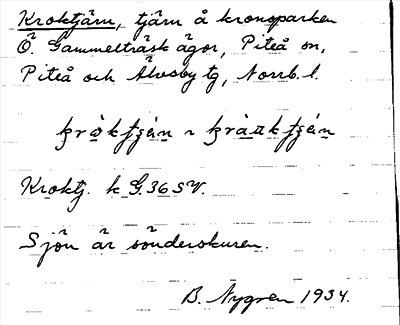 Kroktjärn, tjärn å kronoparken
Ö. Gammelträsk ägor, Piteå sn,
Piteå och Älvsby tg, Norrb. l.
Kroktj. k G.36 SV.
Sjön är sönderskuren.
B. Nygren 1934.